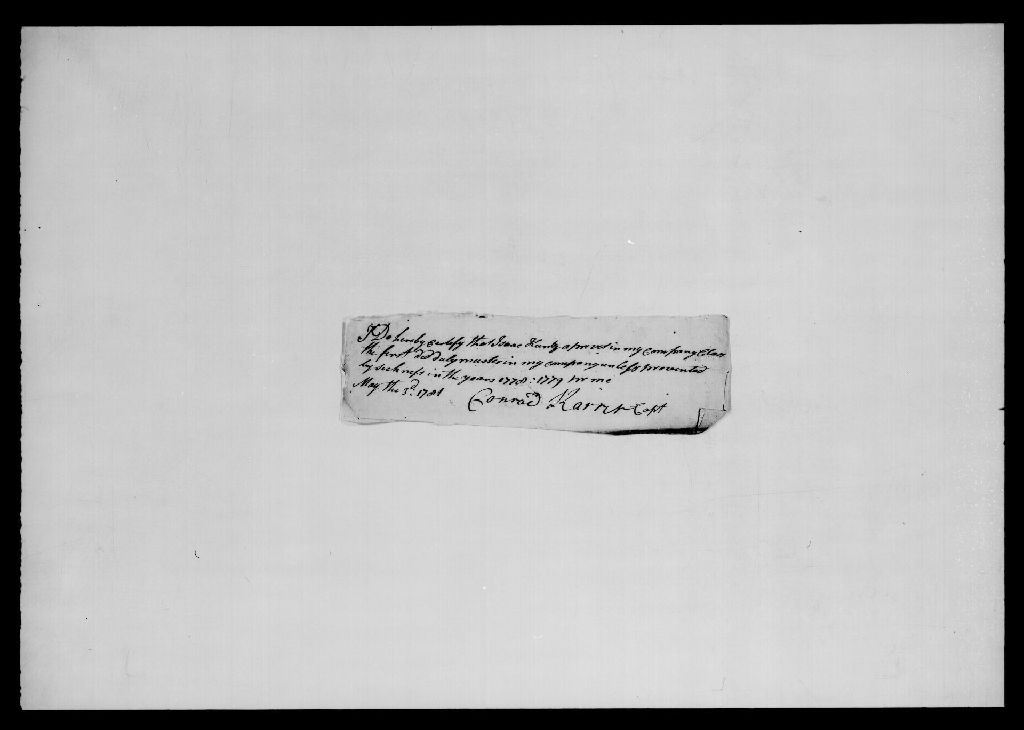 I Do hereby certify that Isaac Kuntz apread in my company Class
the first did duly muster in my company unless prevented
by sickness in the years 1778 : 1779 pr me
May the 3d 1781
Conrad Karne Capt